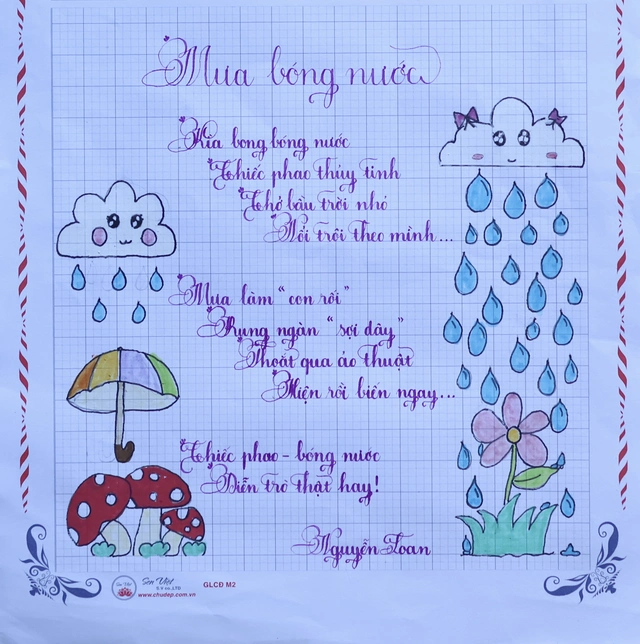 Mưa bóng nước
Kìa bong bóng nước
Chiếc phao thủy tinh
Chở bầu trời nhỏ
Nổi trôi theo mình...
Mưa làm "con rối"
Rung ngàn "sợi dây"
Thoắt qua ảo thuật
Hiện rồi biến ngay...
Chiếc phao - bóng nước
Diễn trò thật hay!
Nguyễn Toan
Sen Việt
Sen Việt
S.V co.,LTD
www.chudep.com.vn
GLCĐ M2